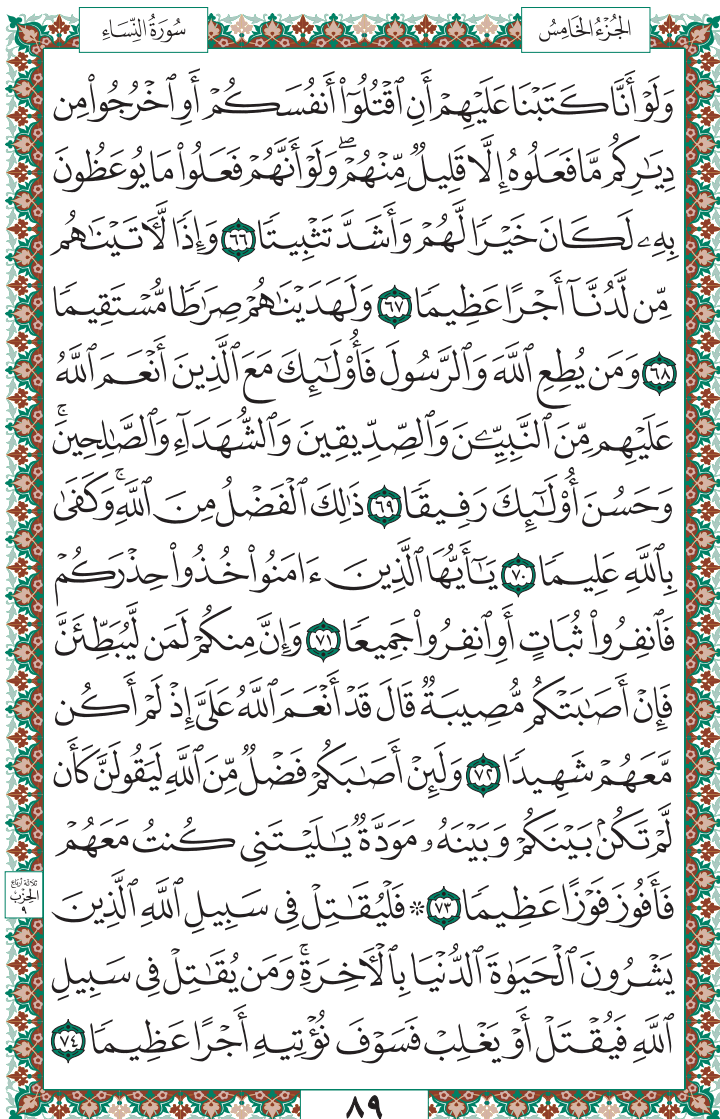 الجُزْءُ الخَامِسُ
سُورَةُ النِّسَاءِ
وَلَوْ أَنَّا كَتَبْنَا عَلَيْهِمْ أَنِ ٱقْتُلُوٓا۟ أَنفُسَكُمْ أَوِ ٱخْرُجُوا۟ مِن
دِيَٰرِكُم مَّا فَعَلُوهُ إِلَّا قَلِيلٌ مِّنْهُمْ ۖ وَلَوْ أَنَّهُمْ فَعَلُوا۟ مَا يُوعَظُونَ
بِهِۦ لَكَانَ خَيْرًا لَّهُمْ وَأَشَدَّ تَثْبِيتًا ٦٦ وَإِذًا لَّـَٔاتَيْنَٰهُم
مِّن لَّدُنَّآ أَجْرًا عَظِيمًا ٦٧ وَلَهَدَيْنَٰهُمْ صِرَٰطًا مُّسْتَقِيمًا
٦٨ وَمَن يُطِعِ ٱللَّهَ وَٱلرَّسُولَ فَأُو۟لَٰٓئِكَ مَعَ ٱلَّذِينَ أَنْعَمَ ٱللَّهُ
عَلَيْهِم مِّنَ ٱلنَّبِيِّـۧنَ وَٱلصِّدِّيقِينَ وَٱلشُّهَدَآءِ وَٱلصَّٰلِحِينَ ۚ
وَحَسُنَ أُو۟لَٰٓئِكَ رَفِيقًا ٦٩ ذَٰلِكَ ٱلْفَضْلُ مِنَ ٱللَّهِ ۚ وَكَفَىٰ
بِٱللَّهِ عَلِيمًا ٧٠ يَٰٓأَيُّهَا ٱلَّذِينَ ءَامَنُوا۟ خُذُوا۟ حِذْرَكُمْ
فَٱنفِرُوا۟ ثُبَاتٍ أَوِ ٱنفِرُوا۟ جَمِيعًا ٧١ وَإِنَّ مِنكُمْ لَمَن لَّيُبَطِّئَنَّ
فَإِنْ أَصَٰبَتْكُم مُّصِيبَةٌ قَالَ قَدْ أَنْعَمَ ٱللَّهُ عَلَىَّ إِذْ لَمْ أَكُن
مَّعَهُمْ شَهِيدًا ٧٢ وَلَئِنْ أَصَٰبَكُمْ فَضْلٌ مِّنَ ٱللَّهِ لَيَقُولَنَّ كَأَن
لَّمْ تَكُنۢ بَيْنَكُمْ وَبَيْنَهُۥ مَوَدَّةٌ يَٰلَيْتَنِى كُنتُ مَعَهُمْ
فَأَفُوزَ فَوْزًا عَظِيمًا ٧٣ ۞ فَلْيُقَٰتِلْ فِى سَبِيلِ ٱللَّهِ ٱلَّذِينَ
يَشْرُونَ ٱلْحَيَوٰةَ ٱلدُّنْيَا بِٱلْـَٔاخِرَةِ ۚ وَمَن يُقَٰتِلْ فِى سَبِيلِ
ٱللَّهِ فَيُقْتَلْ أَوْ يَغْلِبْ فَسَوْفَ نُؤْتِيهِ أَجْرًا عَظِيمًا ٧٤
ثلاثة أرباع
الحِزْب
٩
٨٩